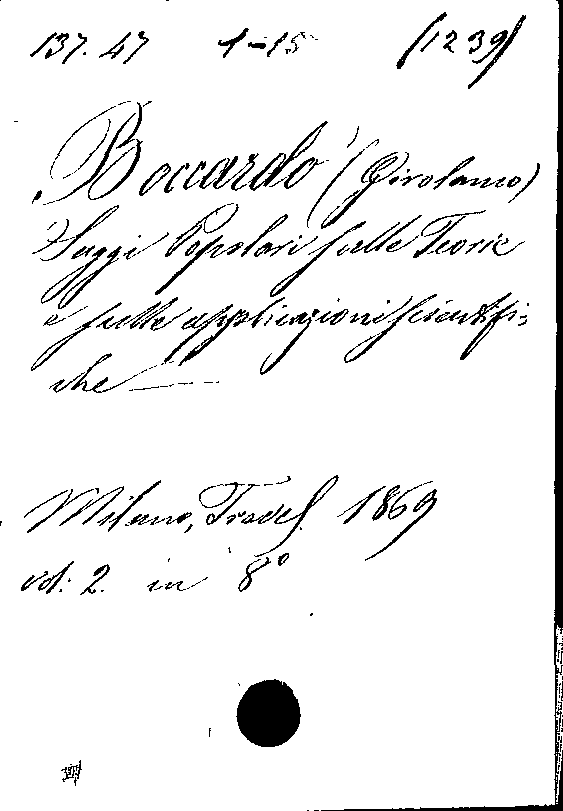 137. 47 1-15 (1239)
Boccardo (Girolamo)
Saggi Popolari sulle Teorie
e sulle applicazioni scientifi-
che
Milano, 1869
vol: 2. in 8°